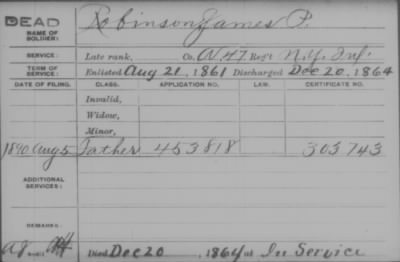 DEAD
NAME OF SOLDIER: Robinson, James P.
SERVICE: Late rank, Co. 47 Reg't N.Y. Inf.
TERM OF SERVICE: Enlisted Aug 21, 1861 Discharged Dec 20, 1864
DATE OF FILING. CLASS. APPLICATION NO. LAW. CERTIFICATE NO.
Invalid,
Widow,
Minor,
1890 Aug 5 Father 453818 303743
ADDITIONAL SERVICES:
REMARKS:
Died Dec 20, 1864 at In Service